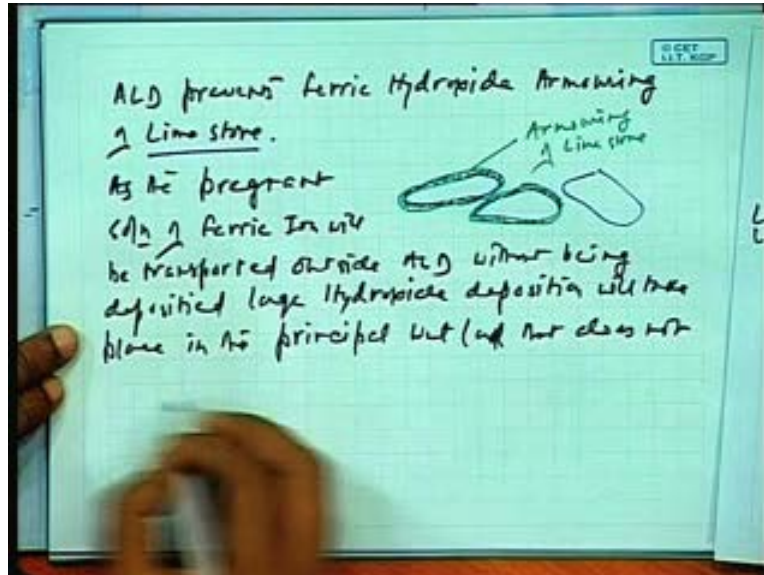 © CET
I.I.T. KGP
ALD prevents ferric Hydroxide Armouring
of Lime stone.
Armouring
of Lime stone
As the pregnant
soln of ferric Ion will
be transported outside ALD without being
deposited large Hydroxide deposition will take
place in the principal wet land that does not